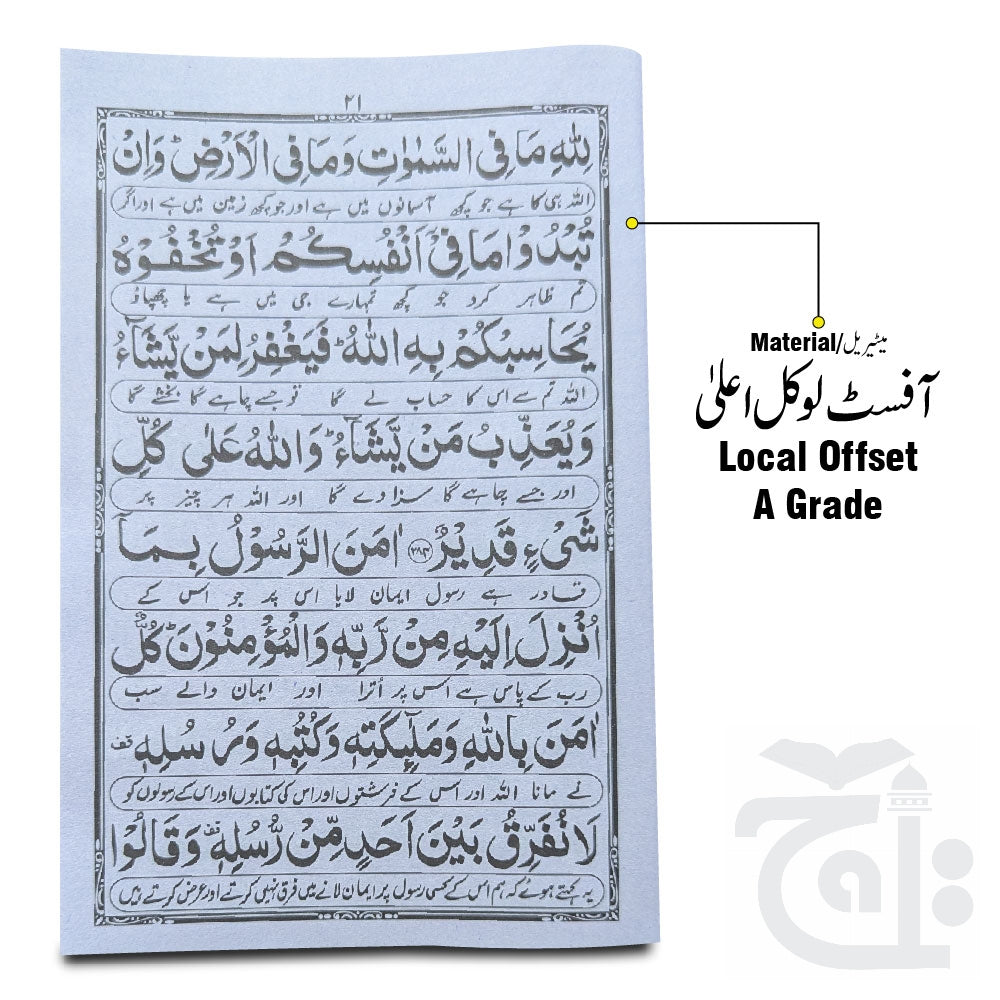 ۲۱
لِلّٰهِ مَا فِی السَّمٰوٰتِ وَمَا فِی الْاَرْضِ ؕ وَاِنْ
اللہ ہی کا ہے جو کچھ آسمانوں میں ہے اور جو کچھ زمین میں ہے اور اگر
تُبْدُوْا مَا فِیْۤ اَنْفُسِكُمْ اَوْ تُخْفُوْهُ
تم ظاہر کرو جو کچھ تمہارے جی میں ہے یا چھپاؤ
یُحَاسِبْكُمْ بِهِ اللّٰهُ ؕ فَیَغْفِرُ لِمَنْ یَّشَآءُ
اللہ تم سے اس کا حساب لے گا تو جسے چاہے گا بخشے گا
وَیُعَذِّبُ مَنْ یَّشَآءُ ؕ وَاللّٰهُ عَلٰی كُلِّ
اور جسے چاہے گا سزا دے گا اور اللہ ہر چیز پر
شَیْءٍ قَدِیْرٌ ﴿۲۸۴﴾ اٰمَنَ الرَّسُوْلُ بِمَاۤ
قادر ہے رسول ایمان لایا اس پر جو اس کے
اُنْزِلَ اِلَیْهِ مِنْ رَّبِّهٖ وَالْمُؤْمِنُوْنَ ؕ كُلٌّ
رب کے پاس سے اس پر اُترا اور ایمان والے سب
اٰمَنَ بِاللّٰهِ وَمَلٰٓئِكَتِهٖ وَكُتُبِهٖ وَرُسُلِهٖ قف
نے مانا اللہ اور اس کے فرشتوں اور اس کی کتابوں اور اس کے رسولوں کو
لَا نُفَرِّقُ بَیْنَ اَحَدٍ مِّنْ رُّسُلِهٖ قف وَقَالُوْا
یہ کہتے ہوئے کہ ہم اس کے کسی رسول پر ایمان لانے میں فرق نہیں کرتے اور عرض کرتے ہیں
Material/میٹیریل
آفسٹ لوکل اعلیٰ
Local Offset
A Grade